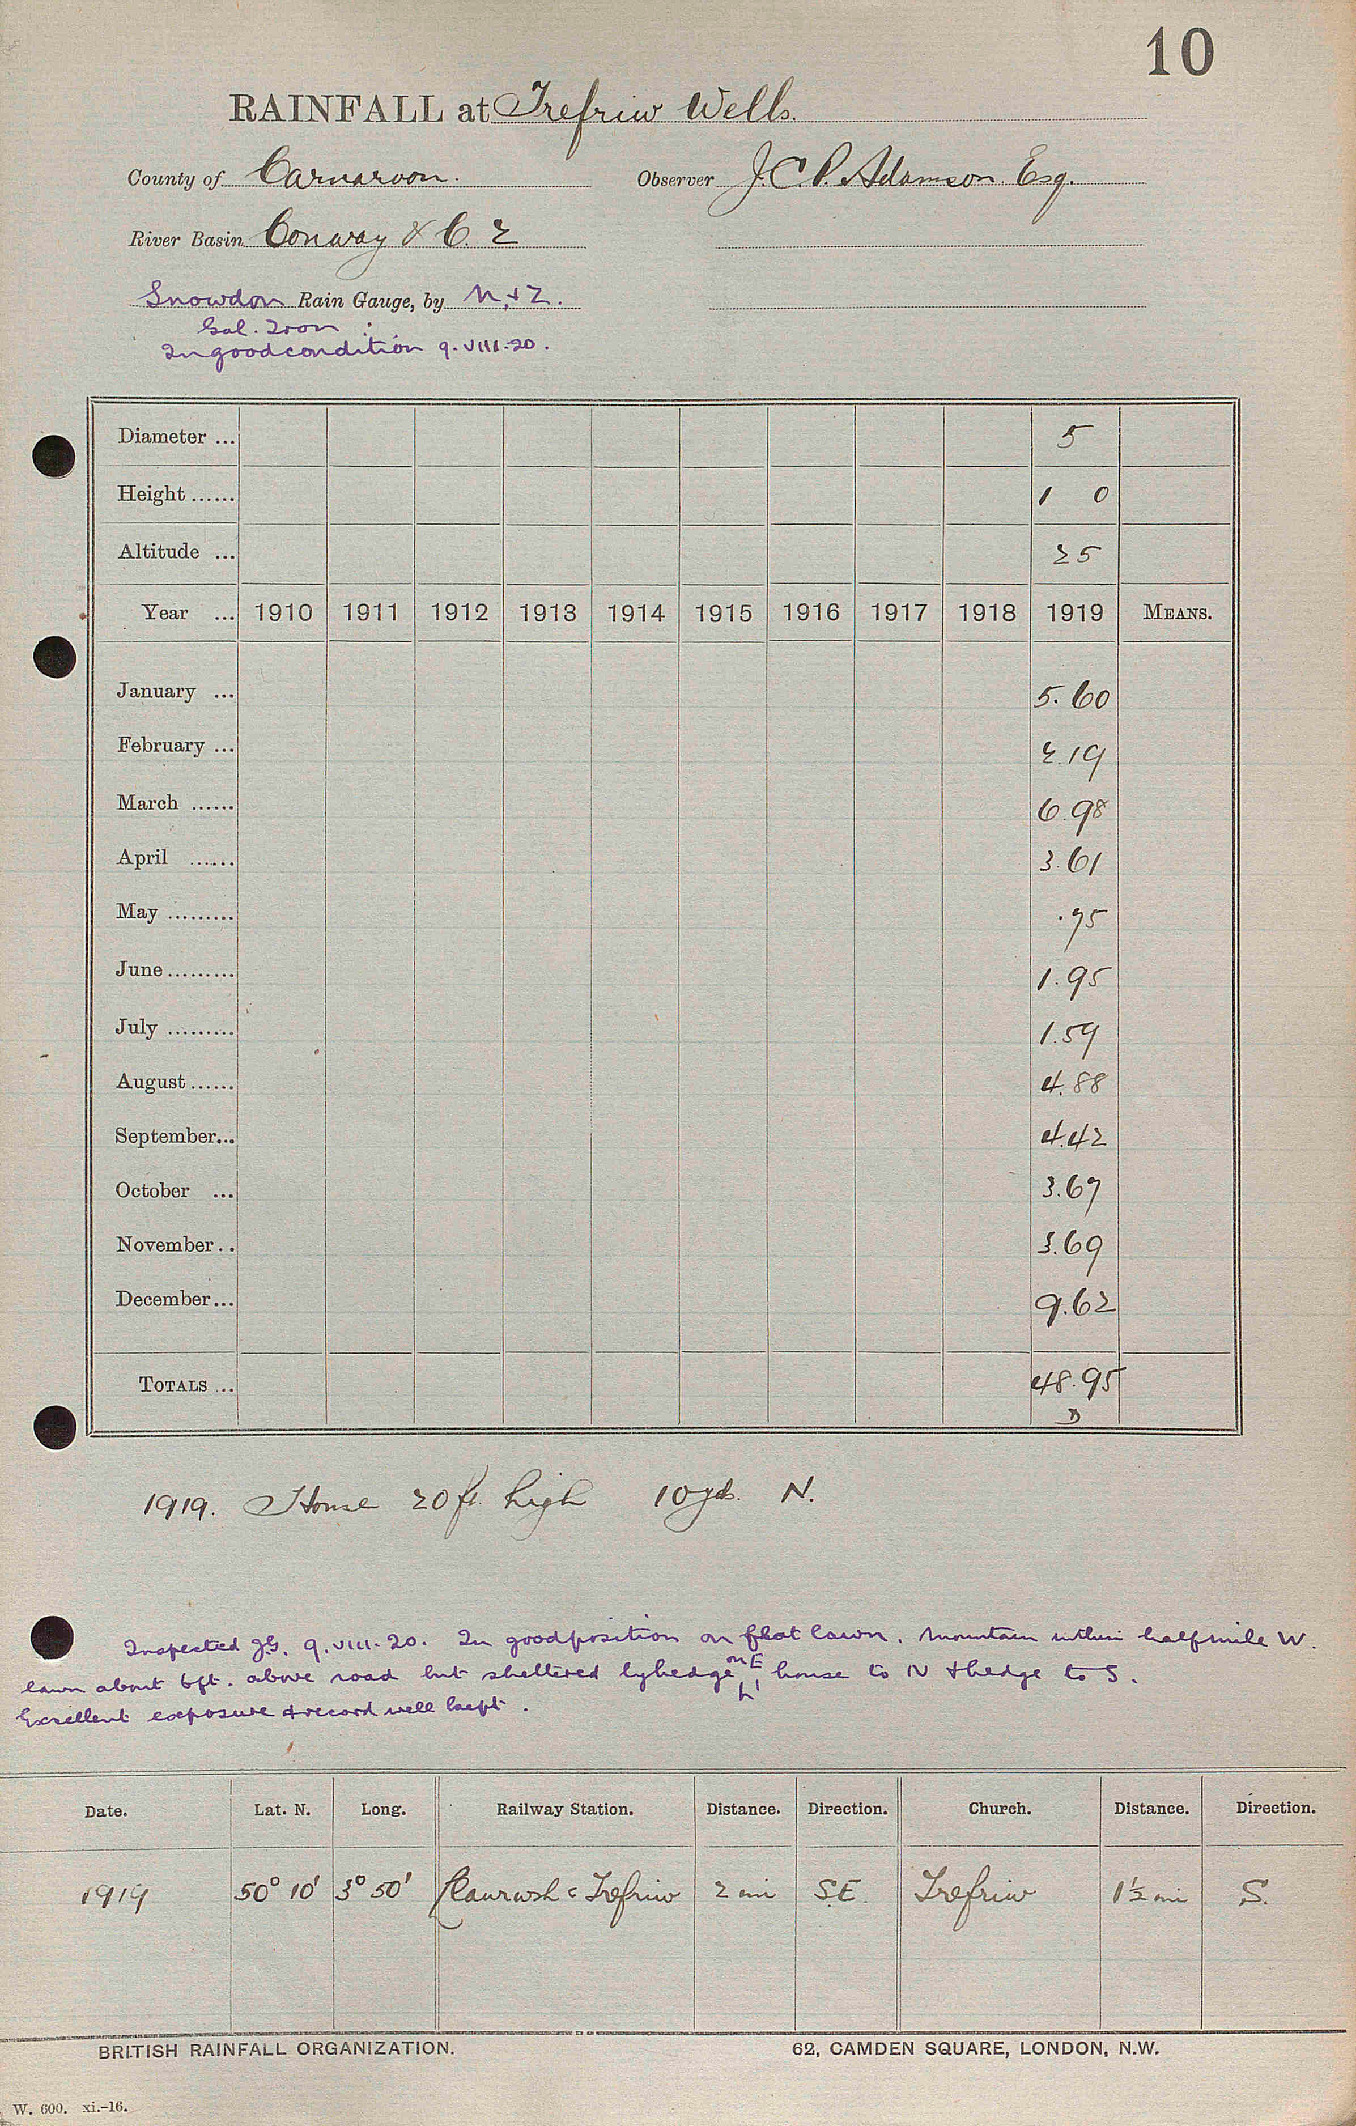 10
RAINFALL at Trefriw Wells.
County of Carnarvon. Observer J. C. P. Adamson. Esq.
River Basin Conway & C. 2
Snowdon Rain Gauge, by N. & Z.
Gal. Iron
In good condition 9. VIII. 20.
Diameter ... 5
Height ...... 1 0
Altitude ... 25
Year ... 1910 1911 1912 1913 1914 1915 1916 1917 1918 1919 MEANS.
January ... 5.60
February ... 2.19
March ...... 6.98
April ...... 3.61
May ......... .75
June ......... 1.95
July ......... 1.59
August ...... 4.88
September... 4.42
October ... 3.67
November.. 3.69
December... 9.62
TOTALS ... 48.95
1919. House 20 ft. high 10 yds. N.
Inspected 9. VIII. 20. In good position on flat lawn. Mountain within half mile W.
lawn about 6ft. above road but sheltered by hedge on E house to N & hedge to S.
Excellent exposure & record well kept.
Date. Lat. N. Long. Railway Station. Distance. Direction. Church. Distance. Direction.
1919 50° 10' 3° 50' Llanrwst & Trefriw 2 mi S.E. Trefriw 1½ mi S.
BRITISH RAINFALL ORGANIZATION. 62, CAMDEN SQUARE, LONDON, N.W.
W. 600. xi.-16.